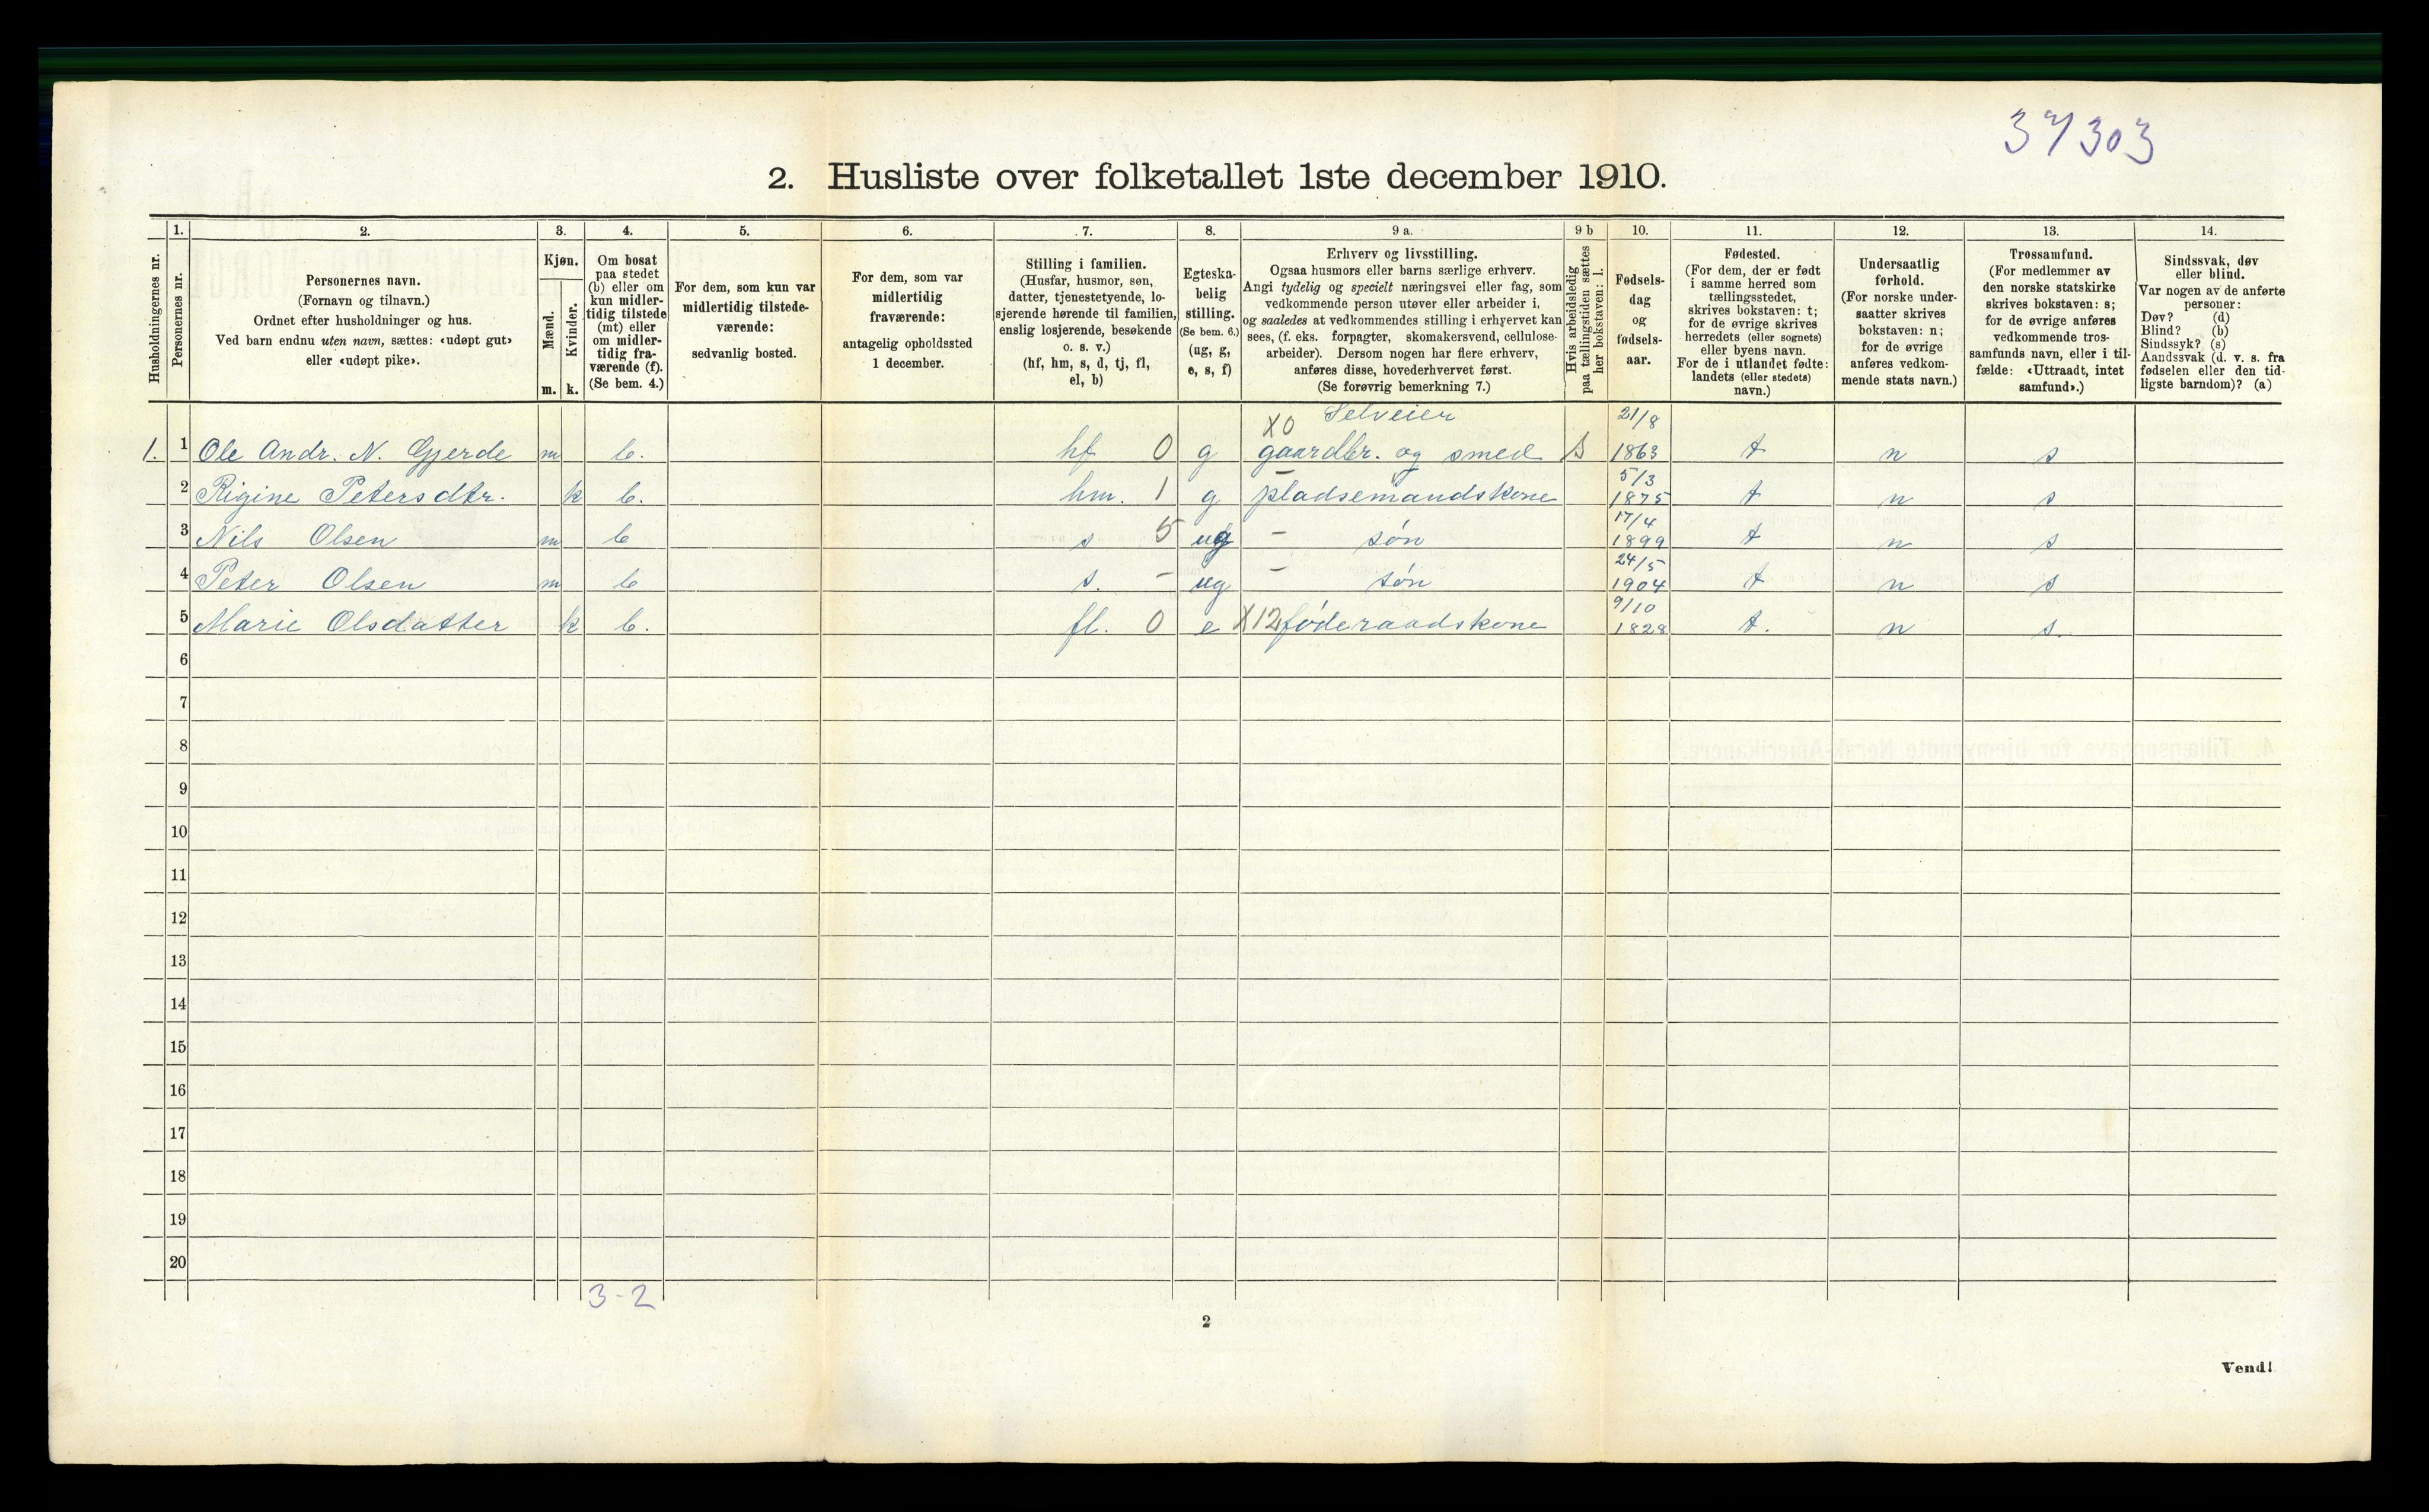 37/303
2. Husliste over folketallet 1ste december 1910.
Husholdningernes nr.
1.
Personernes nr.
2.
Personernes navn.
(Fornavn og tilnavn.)
Ordnet efter husholdninger og hus.
Ved barn endnu uten navn, sættes: «udøpt gut»
eller «udøpt pike».
3.
Kjøn.
Mænd.
m.
Kvinder.
k.
4.
Om bosat
paa stedet
(b) eller om
kun midler-
tidig tilstede
(mt) eller
om midler-
tidig fra-
værende (f).
(Se bem. 4.)
5.
For dem, som kun var
midlertidig tilstede-
værende:
sedvanlig bosted.
6.
For dem, som var
midlertidig
fraværende:
antagelig opholdssted
1 december.
7.
Stilling i familien.
(Husfar, husmor, søn,
datter, tjenestetyende, lo-
sjerende hørende til familien,
enslig losjerende, besøkende
o. s. v.)
(hf, hm, s, d, tj, fl,
el, b)
8.
Egteska-
belig
stilling.
(Se bem. 6.)
(ug, g,
e, s, f)
9 a.
Erhverv og livsstilling.
Ogsaa husmors eller barns særlige erhverv.
Angi tydelig og specielt næringsvei eller fag, som
vedkommende person utøver eller arbeider i,
og saaledes at vedkommendes stilling i erhvervet kan
sees, (f. eks. forpagter, skomakersvend, cellulose-
arbeider). Dersom nogen har flere erhverv,
anføres disse, hovederhvervet først.
(Se forøvrig bemerkning 7.)
9 b
Hvis arbeidsledig
paa tællingstiden sættes
her bokstaven: l.
10.
Fødsels-
dag
og
fødsels-
aar.
11.
Fødested.
(For dem, der er født
i samme herred som
tællingsstedet,
skrives bokstaven: t;
for de øvrige skrives
herredets (eller sognets)
eller byens navn.
For de i utlandet fødte:
landets (eller stedets)
navn.)
12.
Undersaatlig
forhold.
(For norske under-
saatter skrives
bokstaven: n;
for de øvrige
anføres vedkom-
mende stats navn.)
13.
Trossamfund.
(For medlemmer av
den norske statskirke
skrives bokstaven: s;
for de øvrige anføres
vedkommende tros-
samfunds navn, eller i til-
fælde: «Uttraadt, intet
samfund».)
14.
Sindssvak, døv
eller blind.
Var nogen av de anførte
personer:
Døv? (d)
Blind? (b)
Sindssyk? (s)
Aandssvak (d. v. s. fra
fødselen eller den tid-
ligste barndom)? (a)
X0 Selveier 21/8
1. 1 Ole Andr. N. Gjerde m b. hf 0 g gaardbr. og smed 1863 t n s
5/3
2 Rigine Petersdtr. k b. hm. 1 g pladsemandskone 1875 t n s
17/4
3 Nils Olsen m b s 5 ug - søn 1899 t n s
24/5
4 Peter Olsen m b s. - ug - søn 1904 t n s
9/10
5 Marie Olsdatter k b. fl. 0 e X12 føderaadskone 1828 t. n s.
6
7
8
9
10
11
12
13
14
15
16
17
18
19
20
3-2
2
Vend!